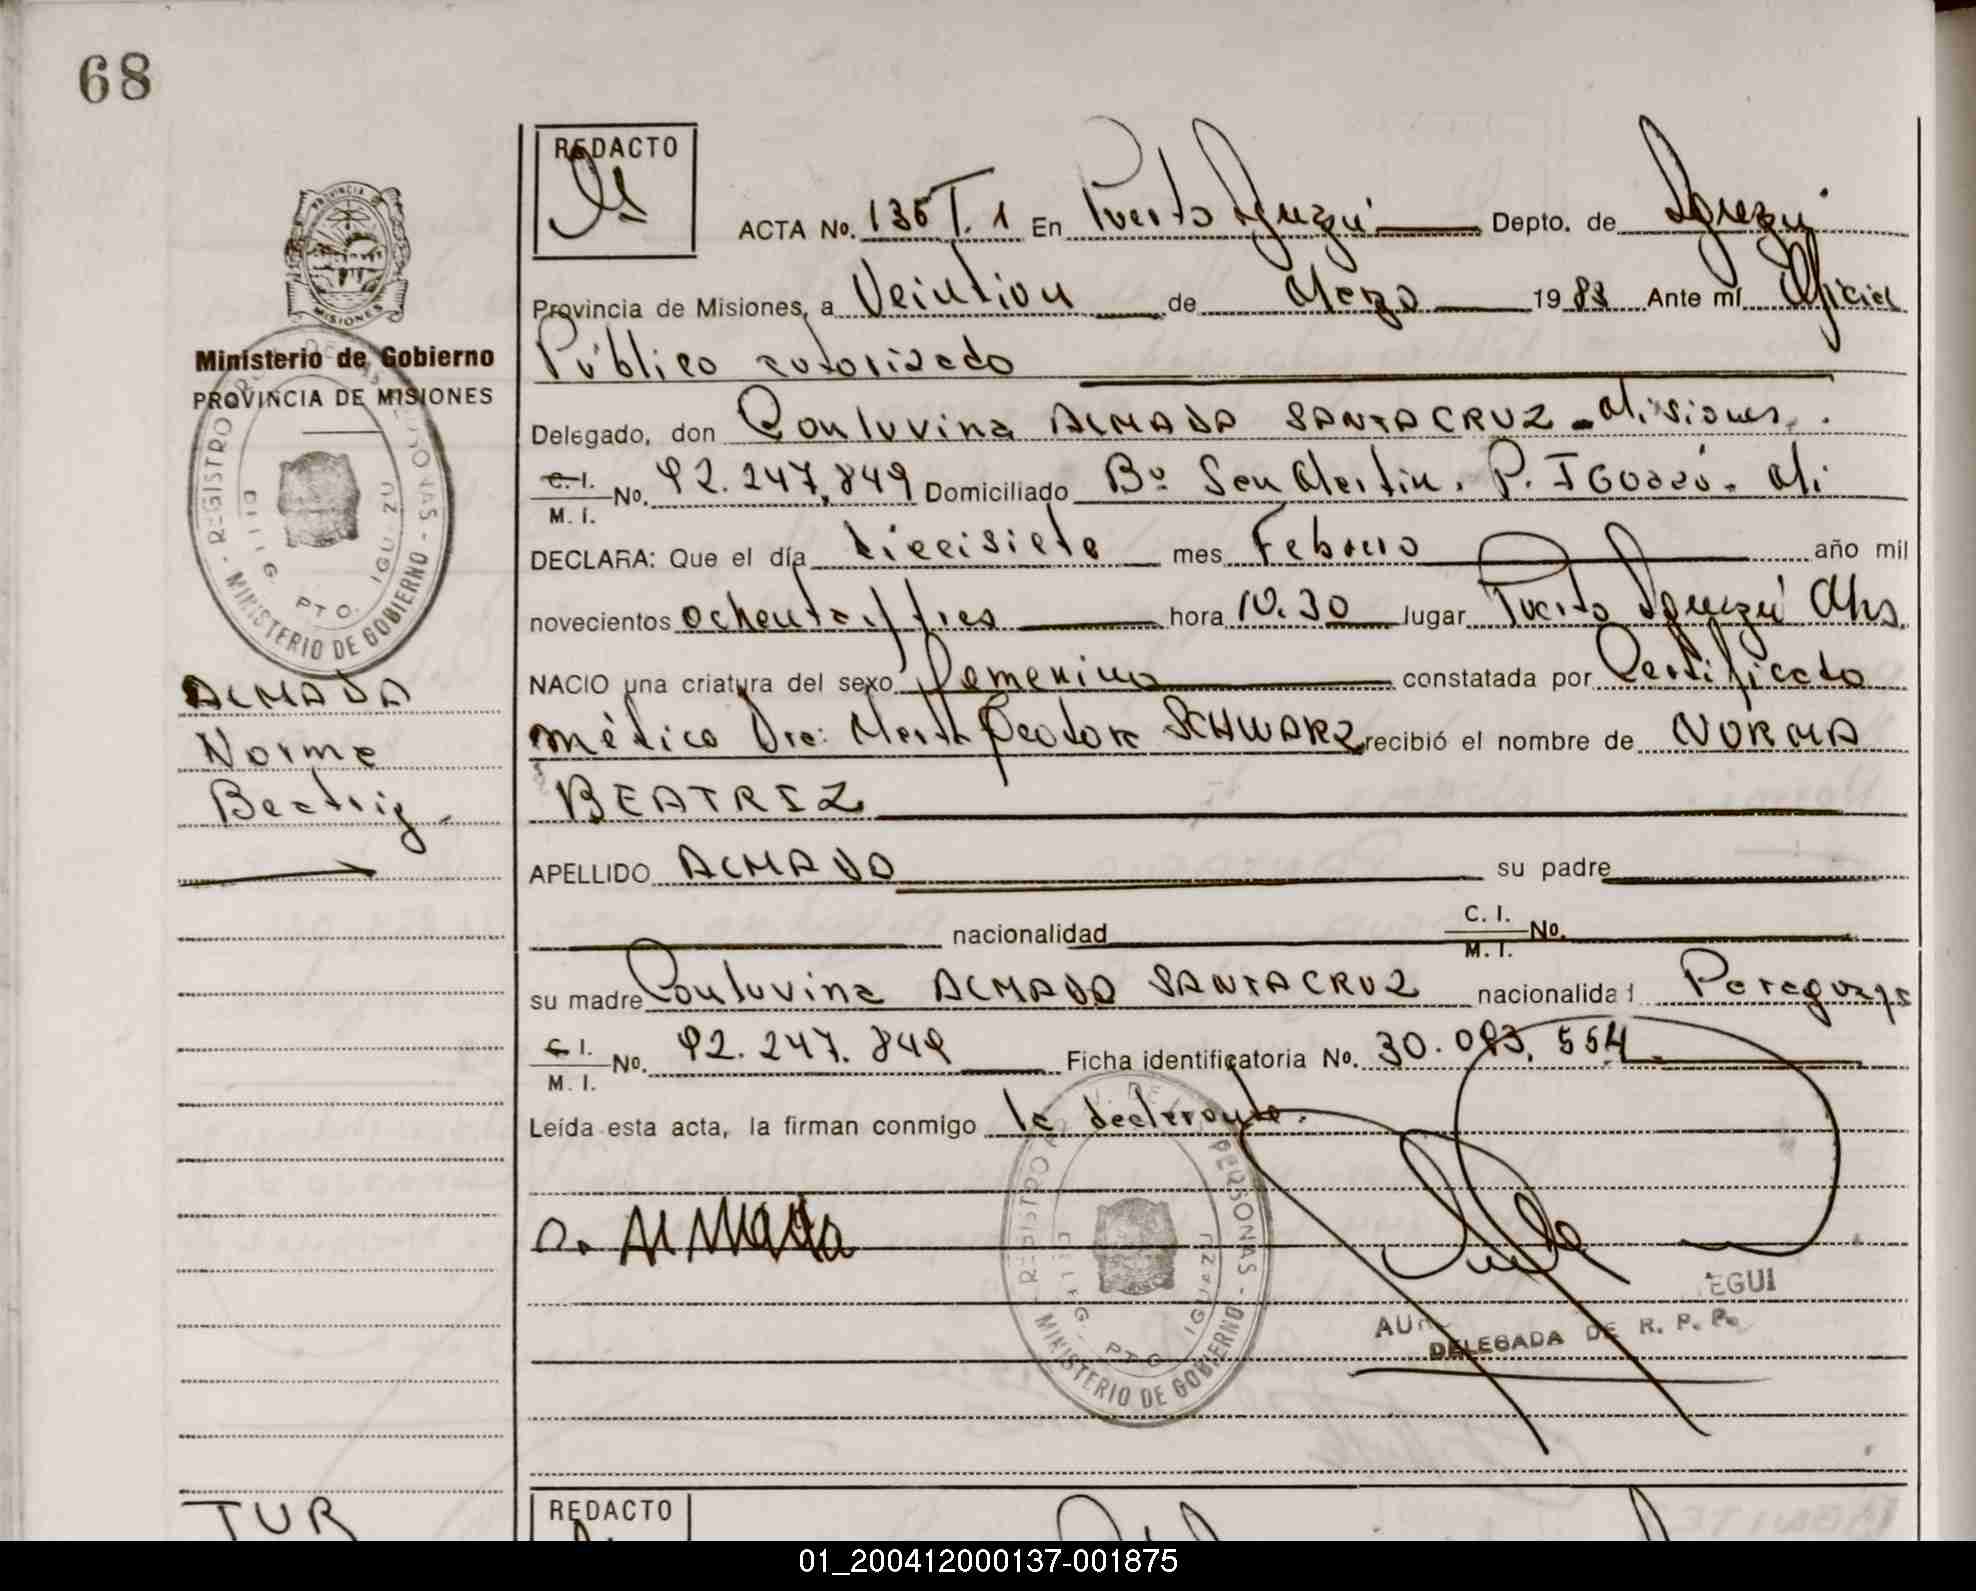 68
REDACTO
ACTA No. 135 T. 1 En Puerto Iguazú Depto. de Iguazú
PROVINCIA
MISIONES
Provincia de Misiones, a Veintiun de Marzo 1983 Ante mí Oficial
Ministerio de Gobierno
PROVINCIA DE MISIONES
Público autorizado
Delegado, don Conluvina ALMADA SANTACRUZ - Misiones.
C. I.
M. I. No. 92.247.849 Domiciliado Bº San Martin. P. IGUAZÚ. Mi
DECLARA: Que el día diecisiete mes Febrero año mil
novecientos ochenta y tres hora 10.30 lugar Puerto Iguazú Mns.
REGISTRO
PTO. IGUAZU
MINISTERIO DE GOBIERNO
NACIO una criatura del sexo femenino constatada por Certificado
médico Dra: Marta Teodora SCHWARZ recibió el nombre de NORMA
BEATRIZ
ALMADA
Norma
Beatriz.
APELLIDO ALMADA su padre
nacionalidad C. I.
M. I. No.
su madre Conluvina ALMADA SANTACRUZ nacionalidad Paraguaya
C. I.
M. I. No. 92.247.849 Ficha identificatoria No. 30.083.554
Leída esta acta, la firman conmigo la declarante.
REGISTRO PERSONAS
PTO IGUAZU
MINISTERIO DE GOBIERNO
Almada
EGUI
DELEGADA DE R. P. P.
TUR
REDACTO
01_200412000137-001875